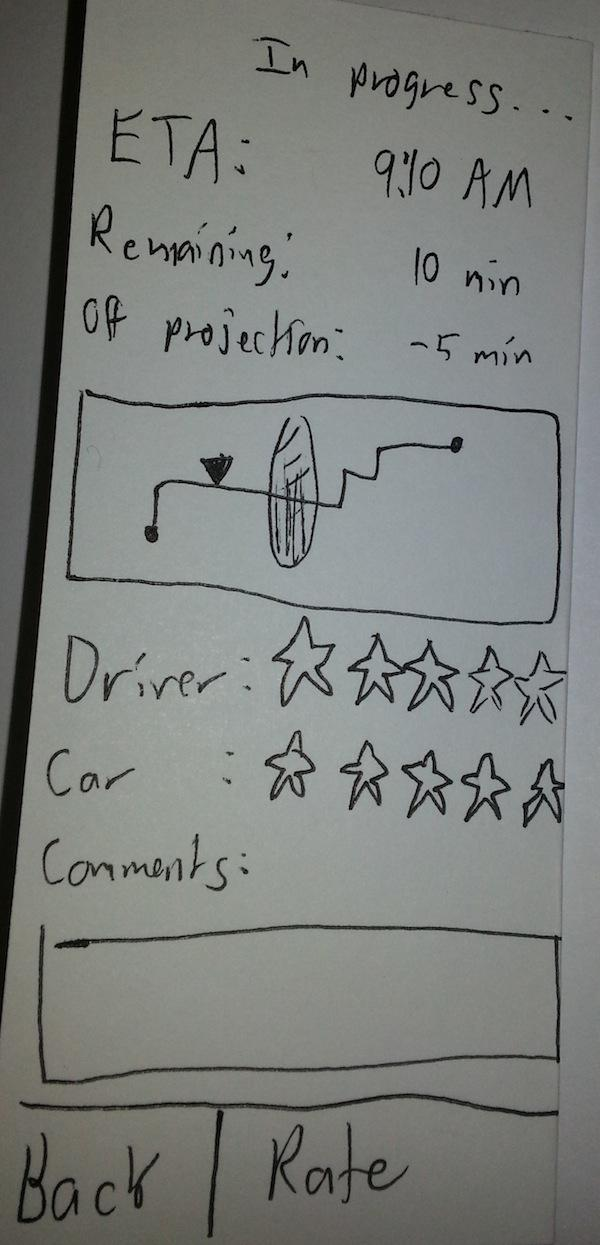 In progress...
ETA: 9:10 AM
Remaining: 10 min
Off projection: -5 min
Driver:
Car :
Comments:
Back | Rate